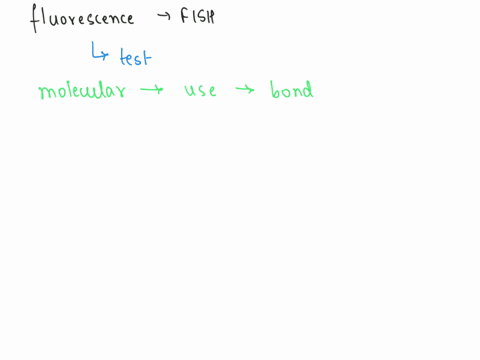 fluorescence → FISH
↳ test
molecular → use → bond